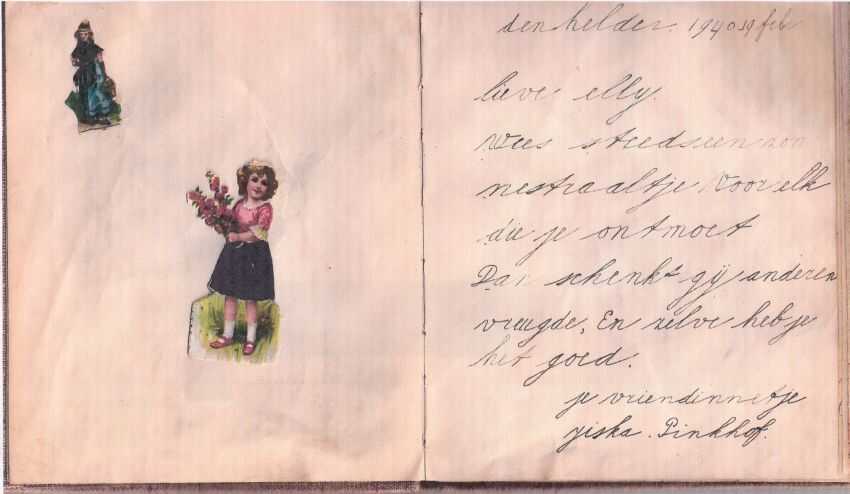 den helder. 1940 19 feb
lieve elly.
Wees steeds een zon
nestraaltje Voor elk
die je ontmoet
Dan schenkt gij anderen
vreugde, En zelve heb je
het goed.
je vriendinnetje
jiska. Pinkhof.